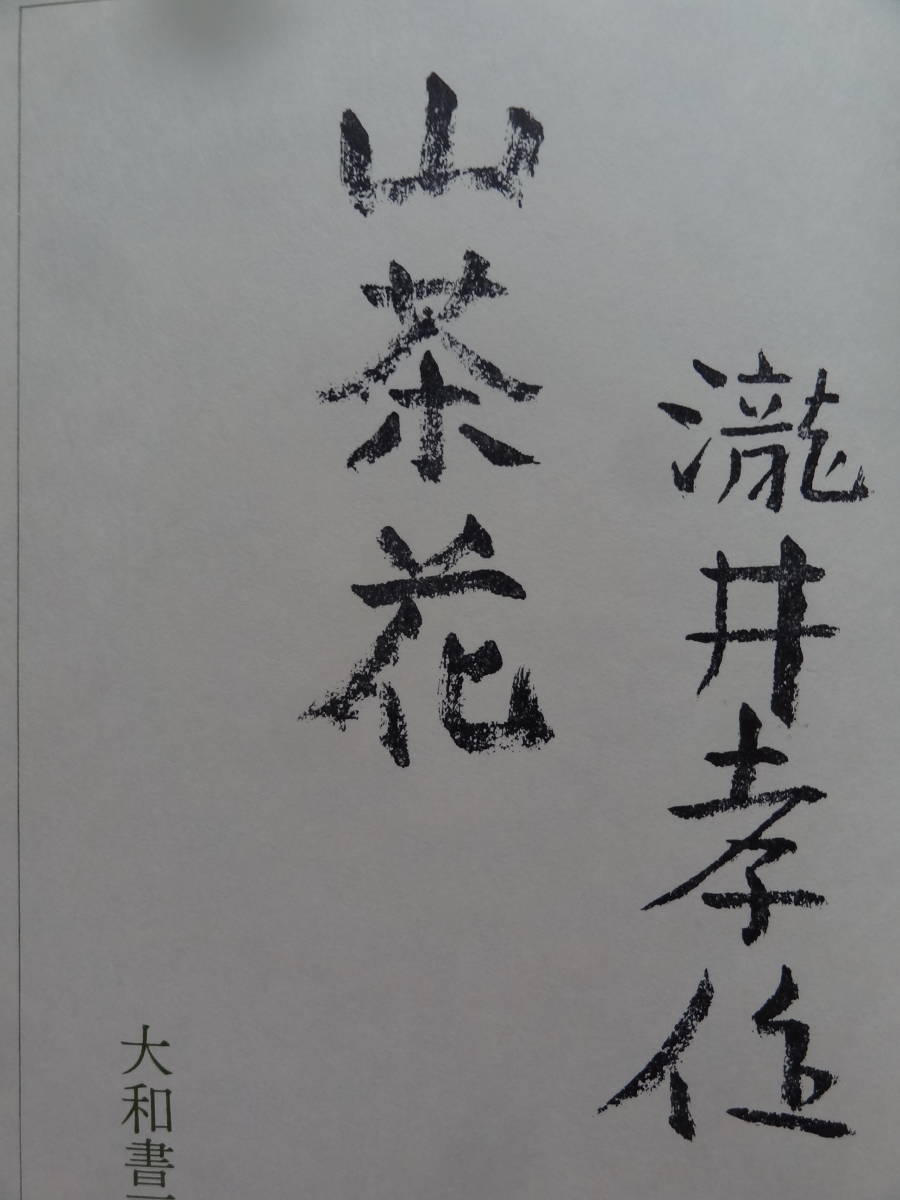 瀧井孝作
山茶花
大和書